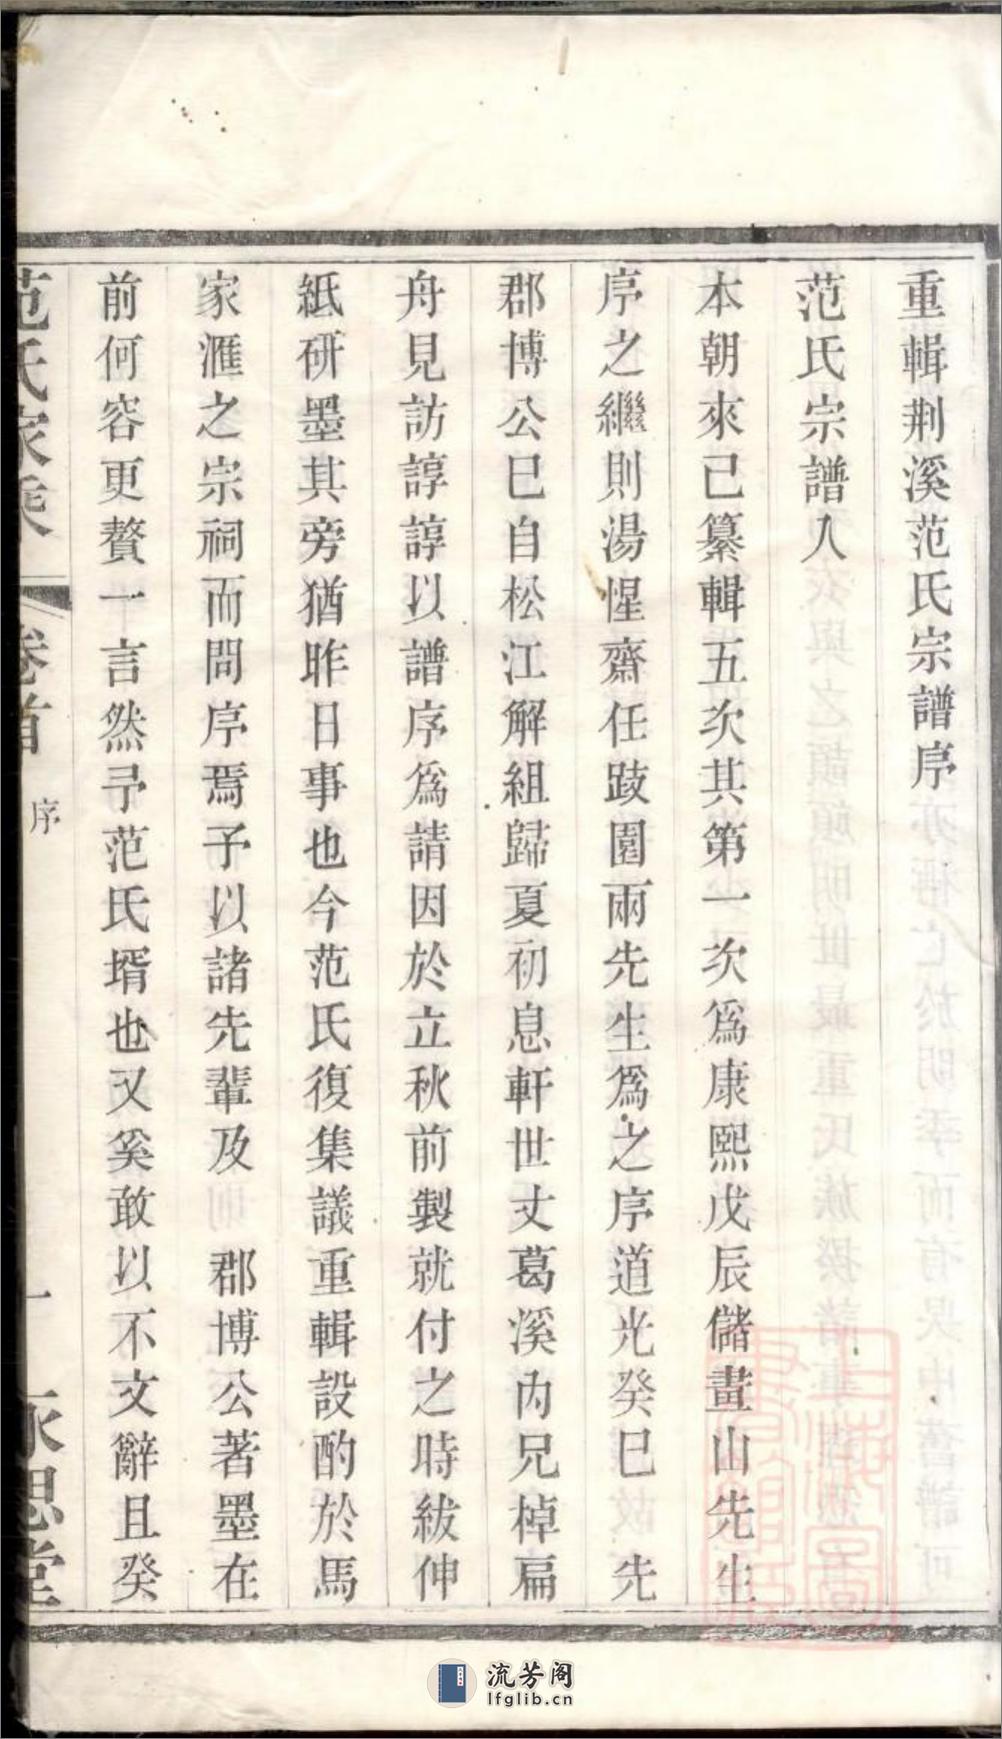 重輯荆溪范氏宗譜序
范氏宗譜入
本朝來已纂輯五次其第一次爲康熙戊辰儲畫山先生
序之繼則湯惺齋任跂園兩先生爲之序道光癸巳　先
郡博公巳自松江解組歸夏初息軒世丈葛溪內兄棹扁
舟見訪諄諄以譜序爲請因於立秋前製就付之時紱伸
紙研墨其旁猶昨日事也今范氏復集議重輯設酌於馬
家滙之宗祠而問序焉予以諸先輩及　郡博公著墨在
前何容更贅一言然予范氏壻也又奚敢以不文辭且癸
范氏家乘
卷首
序
一
永思堂
流芳阁
lfglib.cn